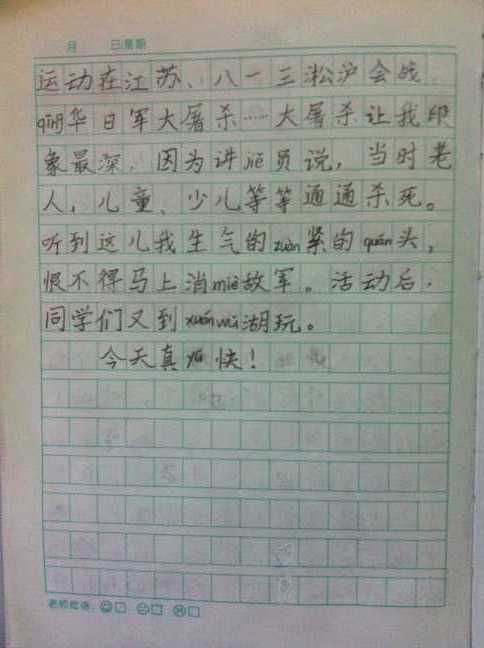 月 日星期
运动在江苏、八一三淞沪会战.
qīn华日军大屠杀……大屠杀让我印
象最深.因为讲jiě员说，当时老
人，儿童、少儿等等通通杀死。
听到这儿我生气的zuàn紧的quán头，
恨不得马上消miè敌军。活动后.
同学们又到xuánwǔ湖玩。
今天真yú快！
老师批语: